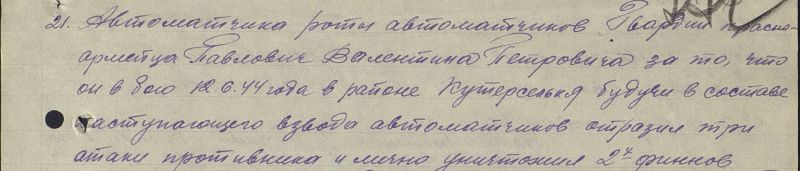 21. Автоматчика роты автоматчиков Гвардии красно-
армейца Павлович Валентина Петровича за то, что
он в бою 12.6.44 года в районе Кутерселькя будучи в составе
наступающего взвода автоматчиков отразил три
атаки противника и лично уничтожил 2х финнов